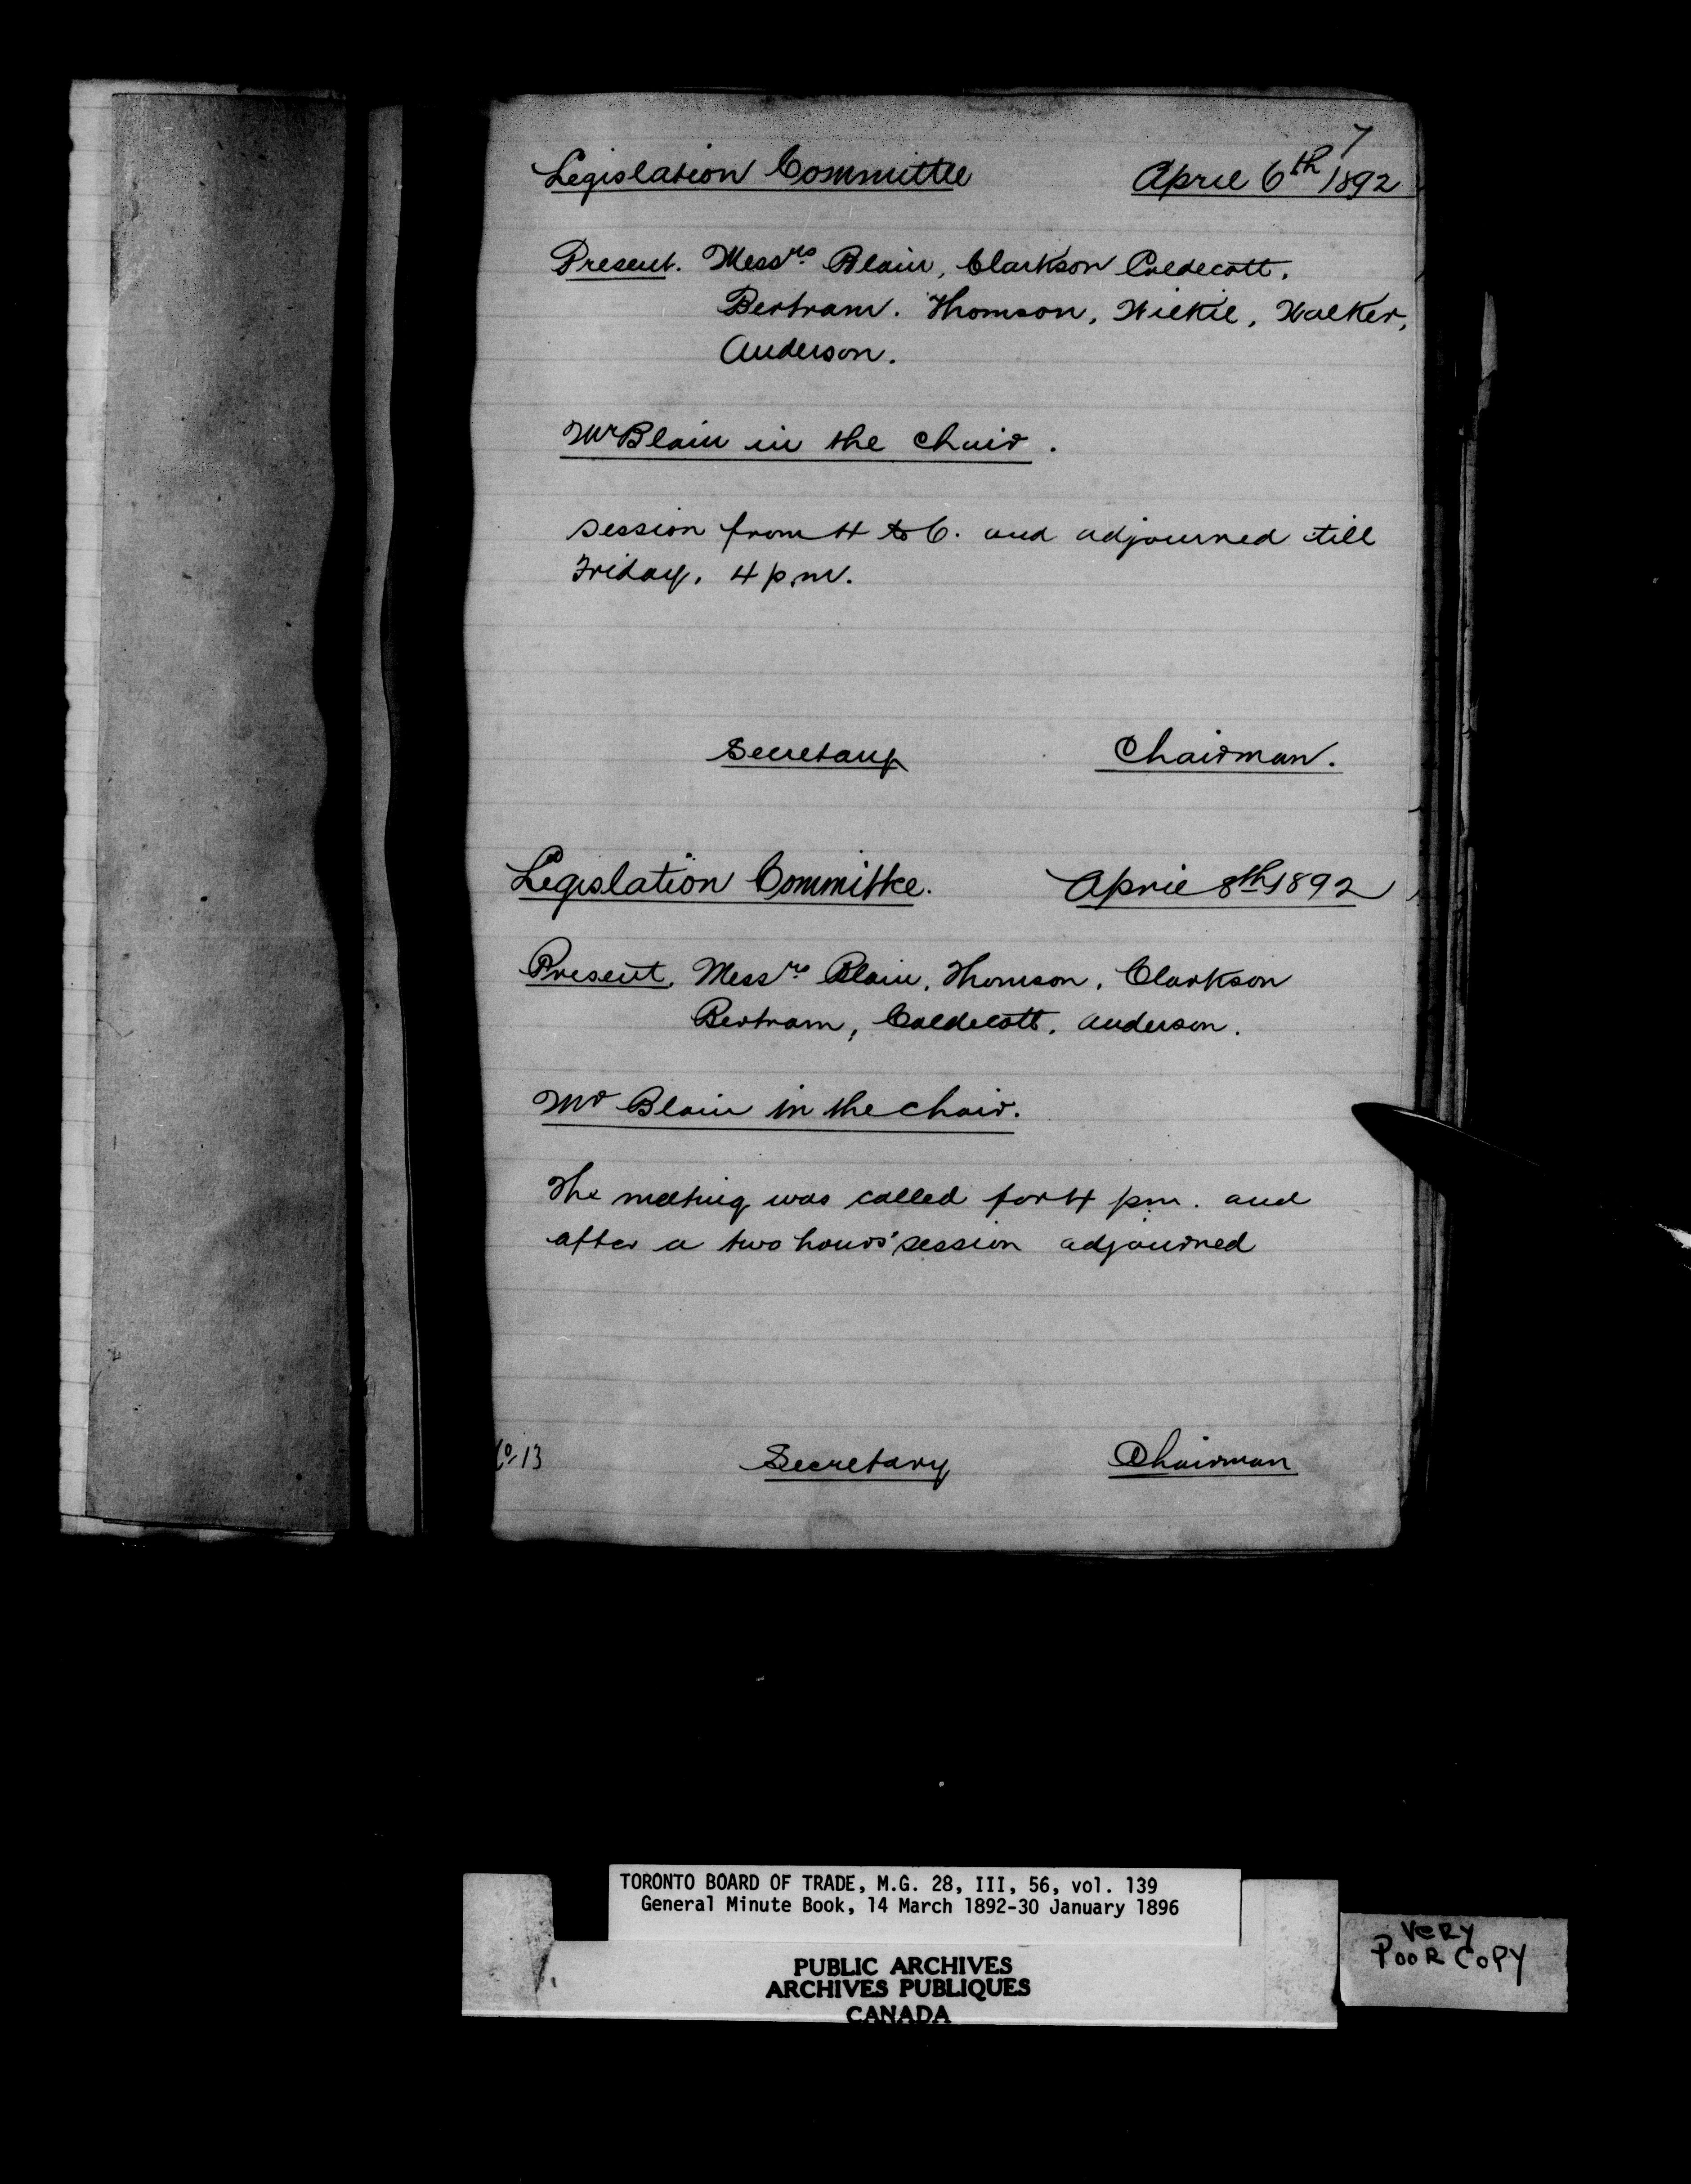 7
Legislation Committee April 6th 1892
Present. Messrs Blain, Clarkson Caldecott,
Bertram. Thomson, Wilkie, Walker,
Anderson.
Mr Blain in the chair.
session from 4 to 6. and adjourned till
Friday, 4 p.m.
Secretary Chairman.
Legislation Committee. April 8th 1892
Present, Messrs Blain, Thomson, Clarkson
Bertram, Caldecott, Anderson.
Mr Blain in the chair.
The meeting was called for 4 pm. and
after a two hours' session adjourned
13 Secretary Chairman
TORONTO BOARD OF TRADE, M.G. 28, III, 56, vol. 139
General Minute Book, 14 March 1892-30 January 1896
PUBLIC ARCHIVES
ARCHIVES PUBLIQUES
CANADA
VeRy
PooR CoPY